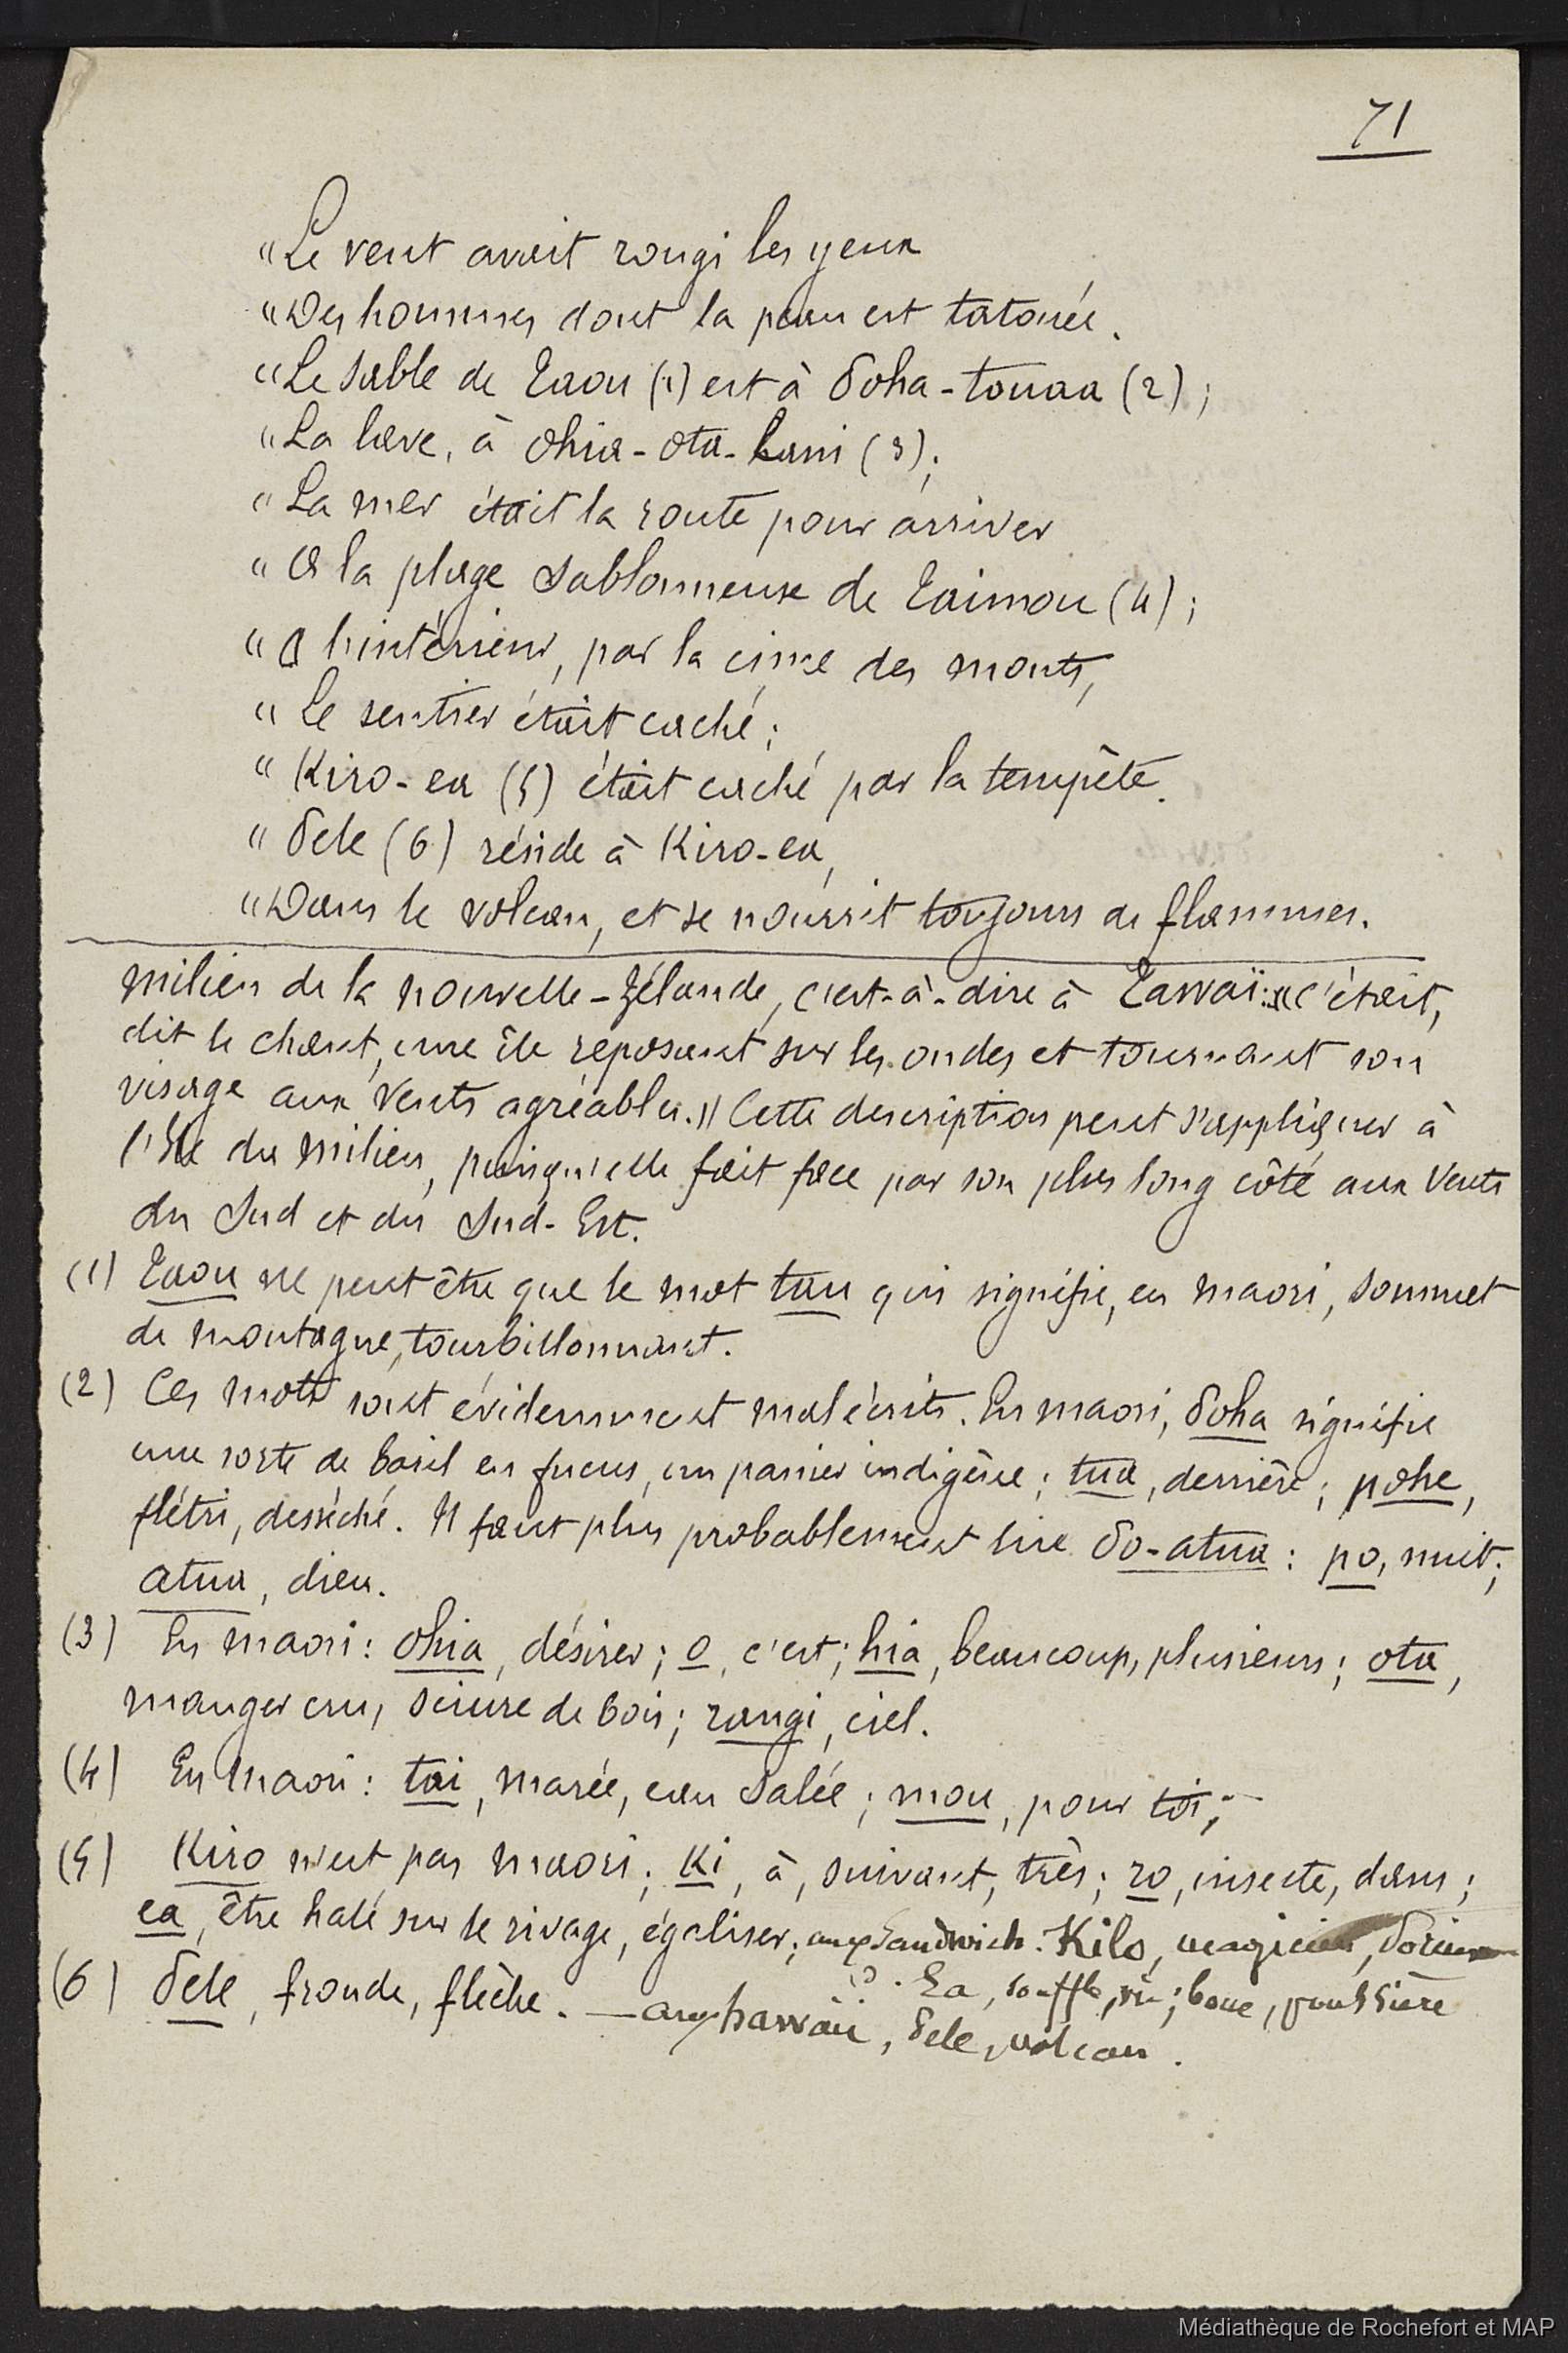 71
"Le vent avait rougi les yeux
"Des hommes dont la peau est tatouée.
"Le sable de Taou (1) est à Poha-touaa (2);
"La lave, à Ohia-ota-lani (3);
"La mer était la route pour arriver
"A la plage sablonneuse de Taimou (4);
"A l'intérieur, par la cime des monts,
"Le sentier était caché;
"Kiro-ea (5) était caché par la tempête.
"Pele (6) réside à Kiro-ea,
"Dans le volcan, et se nourrit toujours de flammes.
milieu de la Nouvelle-Zélande, c'est-à-dire à Tawaï: "c'était,
dit le chant, une île reposant sur les ondes et tournant son
visage aux vents agréables." Cette description peut s'appliquer à
l'Ile du Milieu, puisqu'elle fait face par son plus long côté aux vents
du Sud et du Sud-Est.
(1) Taou ne peut être que le mot tau qui signifie, en maori, sommet
de montagne, tourbillonnant.
(2) Ces mots sont évidemment mal écrits. En maori, Poha signifie
une sorte de baril en fucus, un panier indigène; tua, derrière; pohe,
flétri, desséché. Il faut plus probablement lire Po-atua: po, nuit;
atua, dieu.
(3) En maori: ohia, désirer; o, c'est; hia, beaucoup, plusieurs; ota,
manger cru, sciure de bois; rangi, ciel.
(4) En maori: tai, marée, eau salée; mou, pour toi;
(5) Kiro n'est pas maori; Ki, à, suivant, très; ro, insecte, dans;
ea, être halé sur le rivage, égaliser; aux Sandwich. Kilo, magicien,
Ea, souffle, vie; boue, poussière
(6) Pele, fronde, flèche. — aux hawaii, Pele, volcan.
Médiathèque de Rochefort et MAP